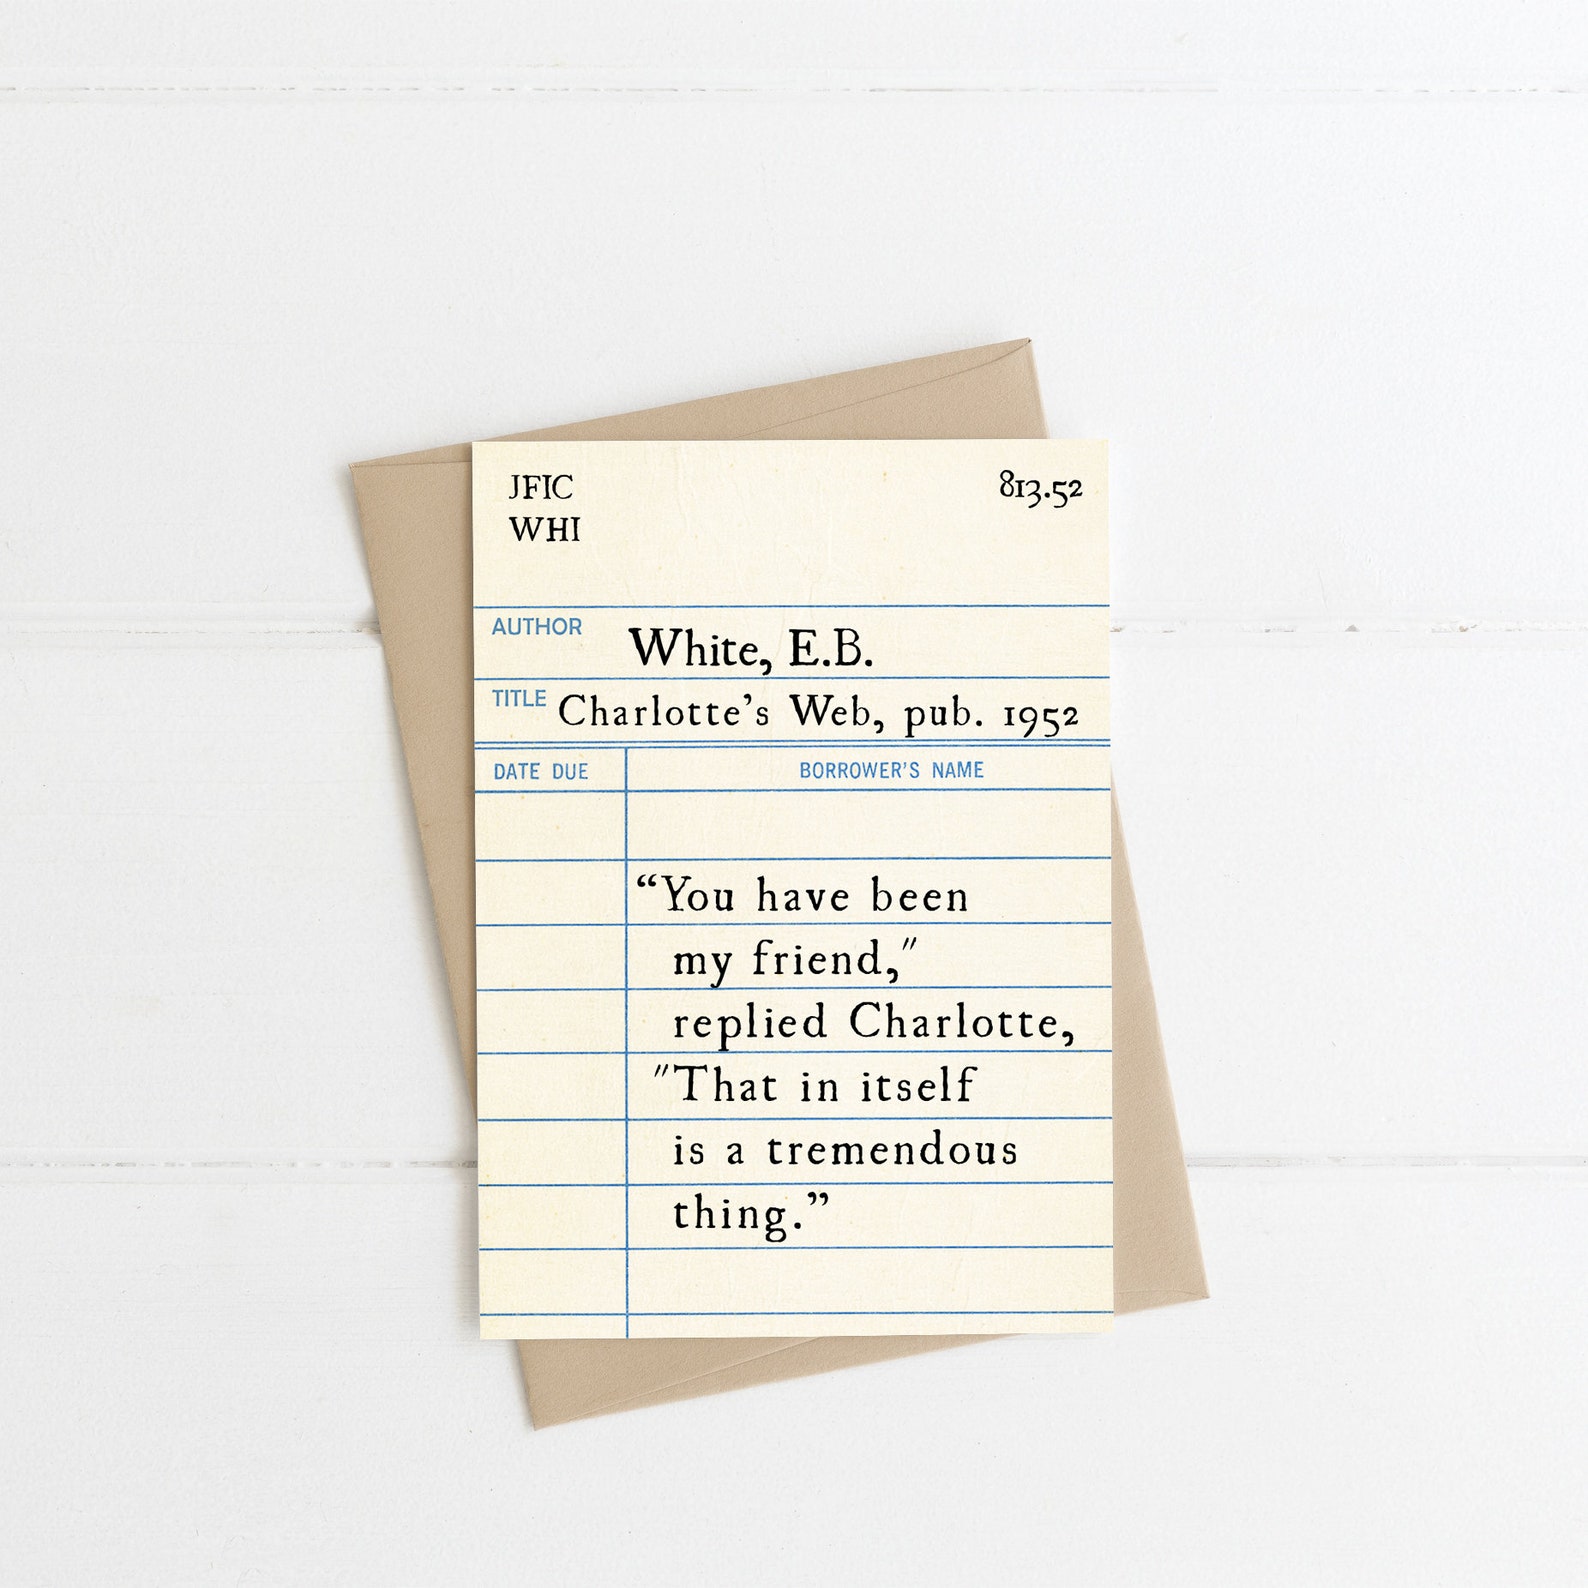 JFIC
813.52
WHI
AUTHOR White, E.B.
TITLE Charlotte's Web, pub. 1952
DATE DUE BORROWER'S NAME
“You have been
my friend,"
replied Charlotte,
"That in itself
is a tremendous
thing.”